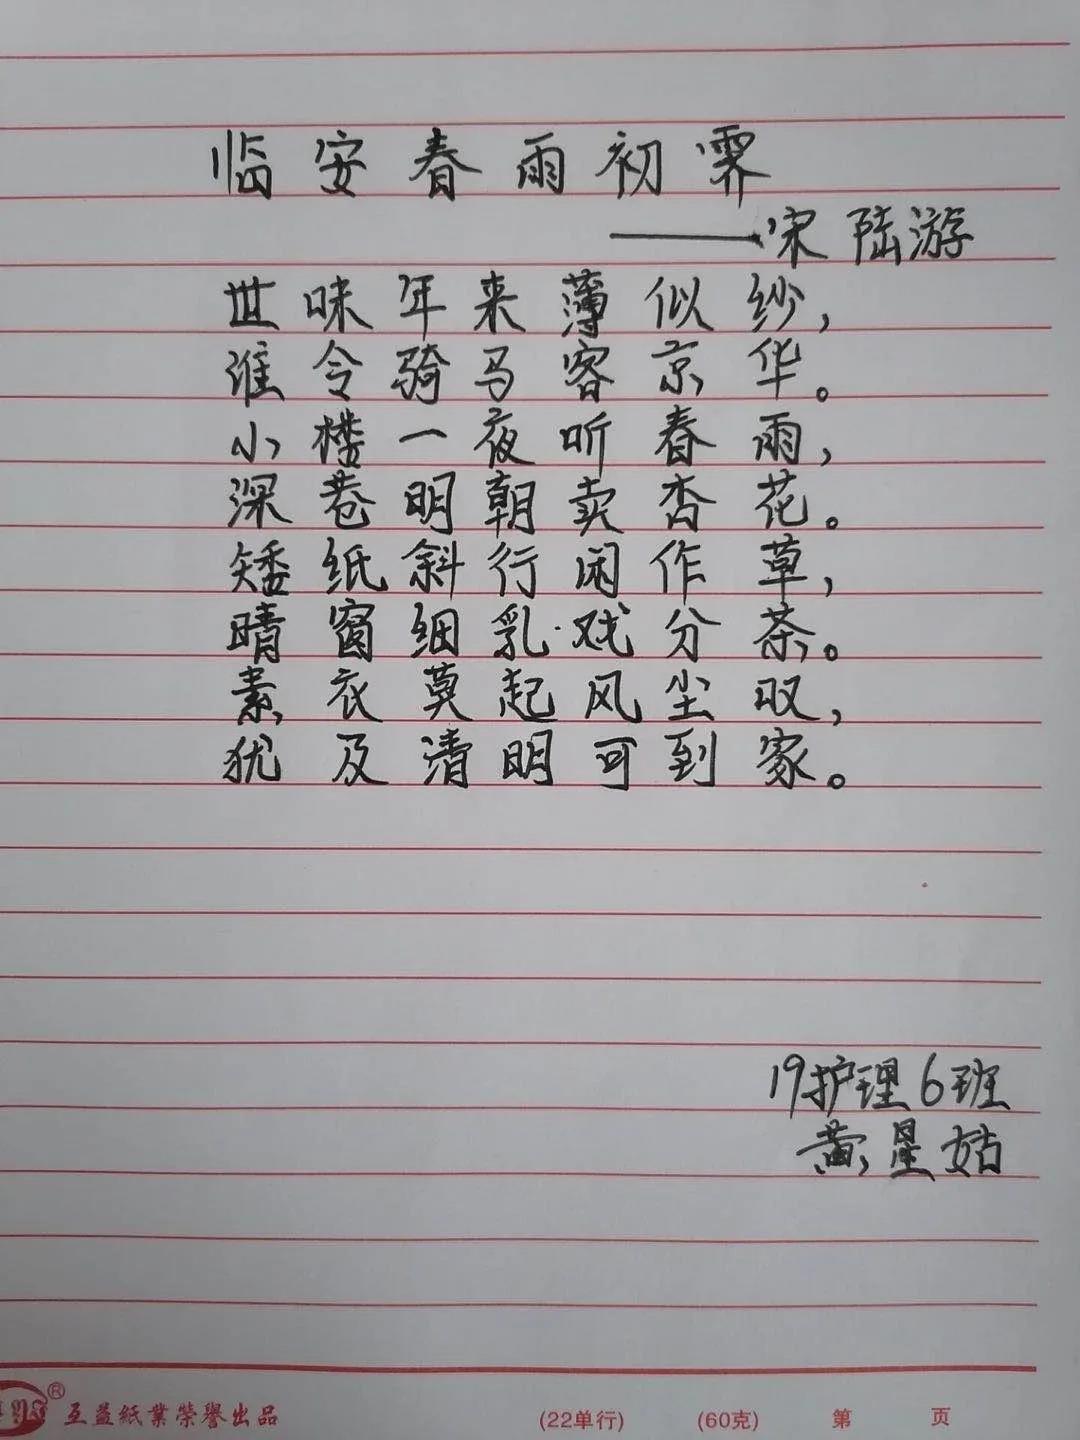 临安春雨初霁
——宋 陆游
世味年来薄似纱,
谁令骑马客京华。
小楼一夜听春雨,
深巷明朝卖杏花。
矮纸斜行闲作草,
晴窗细乳·戏分茶。
素衣莫起风尘叹,
犹及清明可到家。
19护理6班
黄星姑
®
互益紙業榮譽出品 (22单行) (60克) 第 页